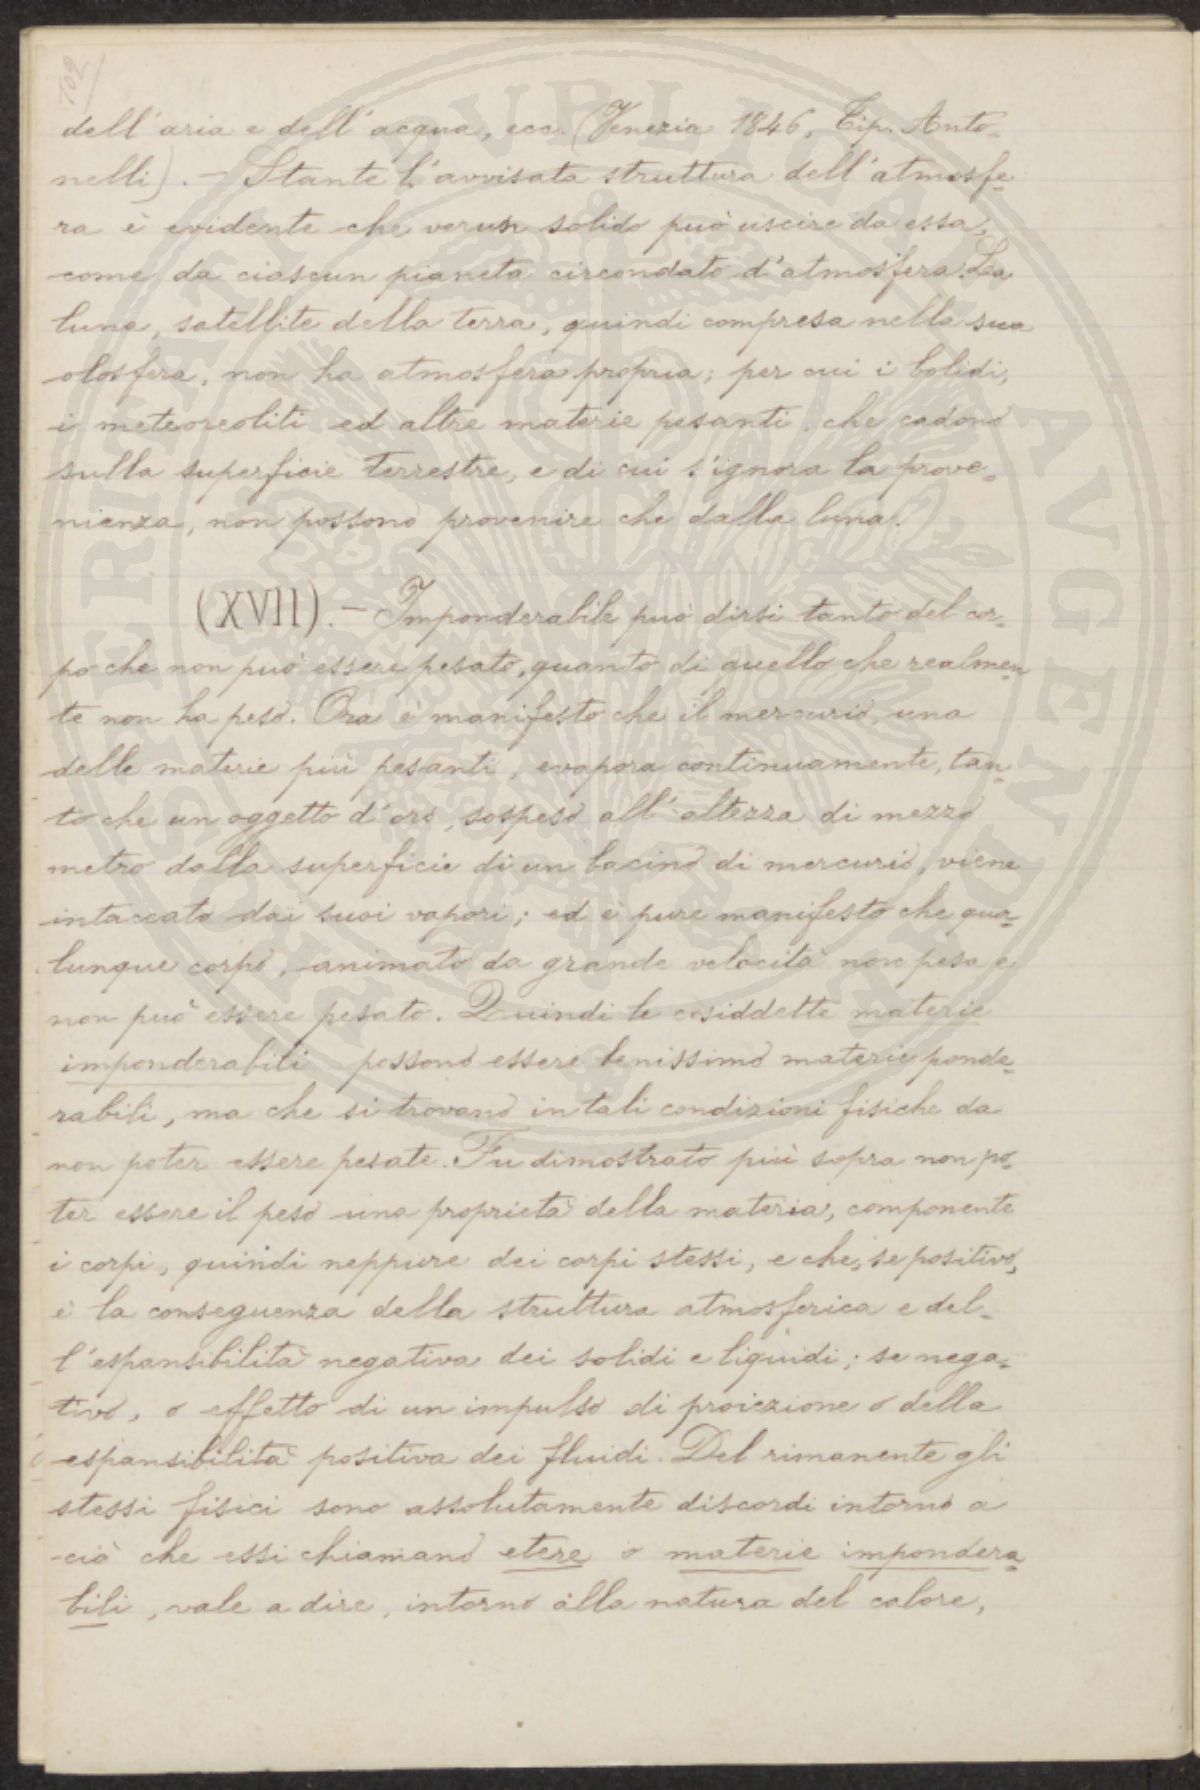 102
dell'aria e dell'acqua, ecc. (Venezia 1846, Tip. Anto-
nelli). - Stante l'avvisata struttura dell'atmosfe-
ra è evidente che verun solido può uscire da essa,
come da ciascun pianeta circondato d'atmosfera. La
luna, satellite della terra, quindi compresa nella sua
olosfera, non ha atmosfera propria; per cui i bolidi,
i meteoreoliti ed altre materie pesanti, che cadono
sulla superficie terrestre, e di cui s'ignora la prove-
nienza, non possono provenire che dalla luna.
(XVII). - Imponderabile può dirsi tanto del cor-
po che non può essere pesato, quanto di quello che realmen-
te non ha peso. Ora è manifesto che il mercurio, una
delle materie più pesanti, evapora continuamente, tan-
to che un oggetto d'oro, sospeso all'altezza di mezzo
metro dalla superficie di un bacino di mercurio, viene
intaccato dai suoi vapori; ed è pure manifesto che qua-
lunque corpo, animato da grande velocità non pesa e
non può essere pesato. Quindi le cosiddette materie
imponderabili possono essere benissimo materie ponde-
rabili, ma che si trovano in tali condizioni fisiche da
non poter essere pesate. Fu dimostrato più sopra non po-
ter essere il peso una proprietà della materia, componente
i corpi, quindi neppure dei corpi stessi, e che, se positivo,
è la conseguenza della struttura atmosferica e del-
l'espansibilità negativa dei solidi e liquidi; se nega-
tivo, o effetto di un impulso di proiezione o della
espansibilità positiva dei fluidi. Del rimanente gli
stessi fisici sono assolutamente discordi intorno a
ciò che essi chiamano etere o materie impondera-
bili, vale a dire, intorno alla natura del calore,